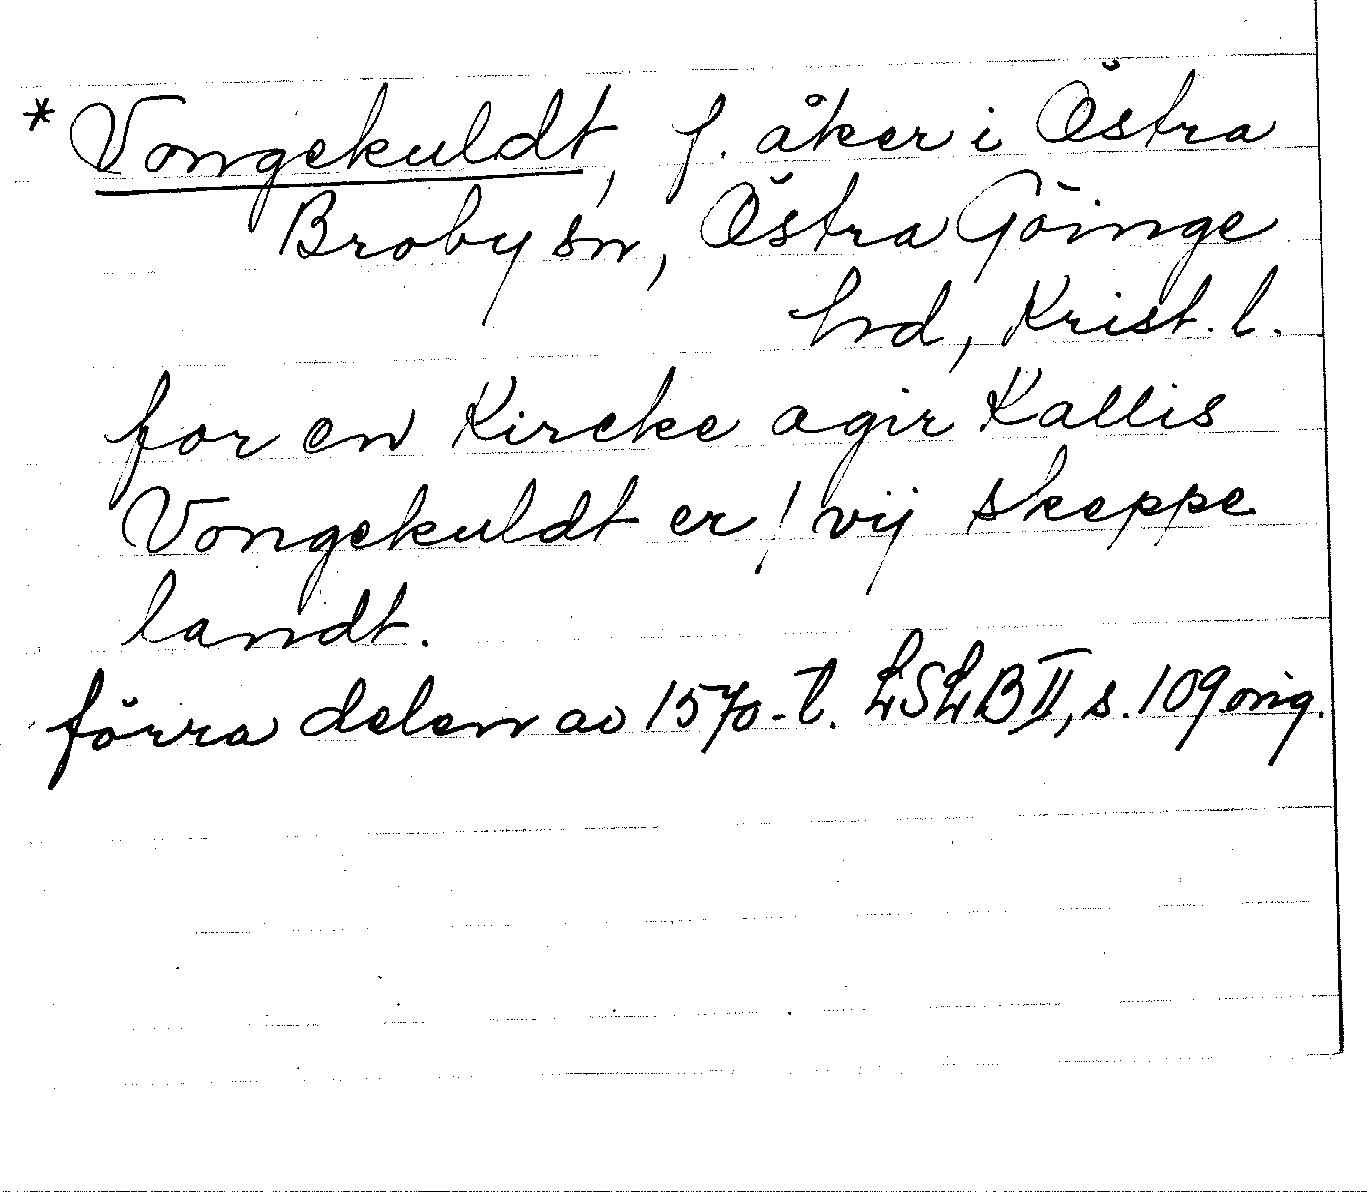 * Vongekuldt, f. åker i Östra
Broby sn, Östra Göinge
hrd, Krist. l.
for en Kircke agir Kallis
Vongekuldt er / vij skeppe
landt.
förra delen av 1570-t. LSLB II, s. 109 orig.